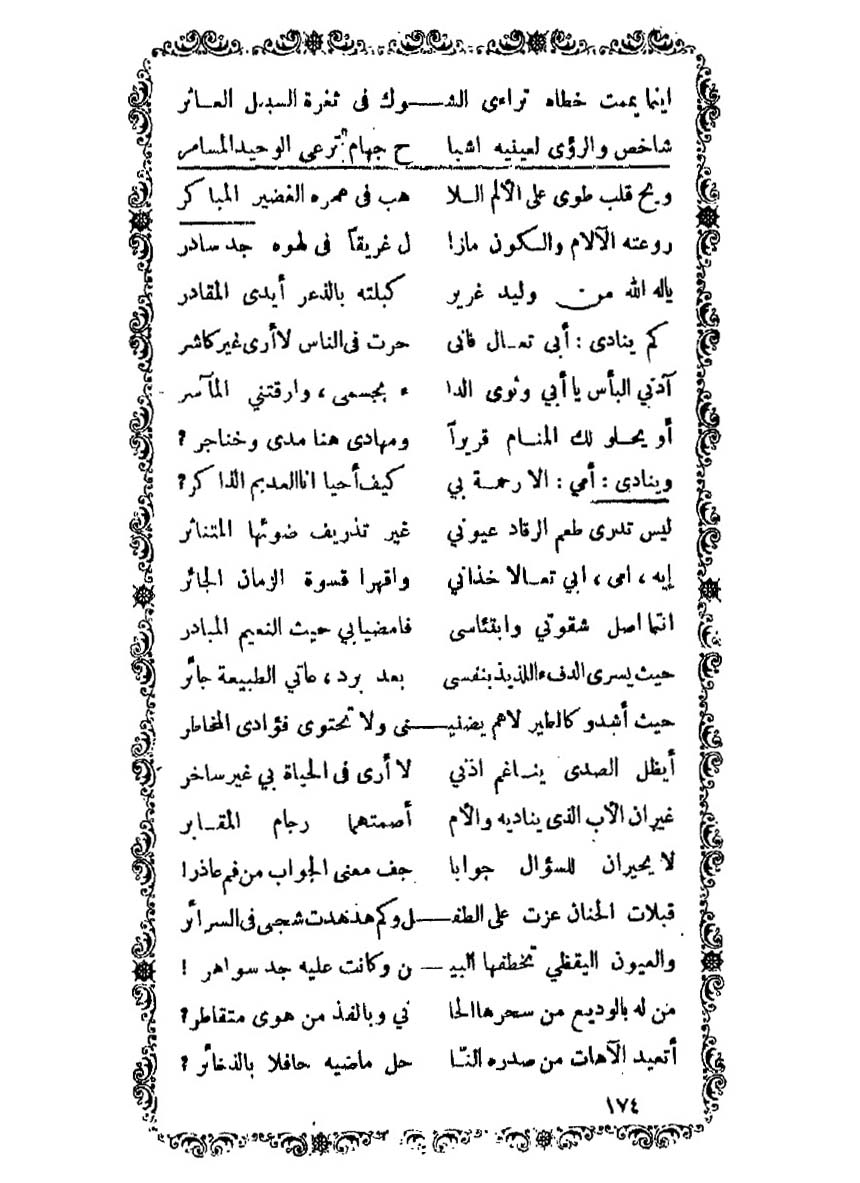 اينما يممت خطاه تراءى الشـــوك فى ثغرة السبيل العـاثر
شاخص والرؤى لعينيه اشبا ح جهام ترعى الوحيد المسامر
ويح قلب طوى على الألم اللا هب فى عمره الغضير المباكر
روعته الآلام والسكون مازا ل غريقاً فى لهوه جد سادر
ياله الله من وليد غرير كبلته بالذعر أيدى المقادر
كم ينادى : أبى تعـال فانى حرت فى الناس لا أرى غير كاشر
آدنى البأس يا أبي وثوى الدا ء بجسمى ، وارقتني المآسر
أو يحـلو لك المنـام قريراً ومهادى هنا مدى وخناجر ؟
وينادى : أمي : الا رحمـة بي كيف أحيا انا العديم الذاكر ؟
ليس تدرى طعم الرقاد عيوني غير تذريف ضوئها المتناثر
إيه ، امى ، ابي تعـالا خذاني واقهرا قسوة الزمان الجائر
انتما اصل شقوتي وابتئاسى فامضيا بي حيث النعيم المبادر
حيث يسرى الدفء اللذيذ بنفسى بعد برد ، عاتي الطبيعة جائر
حيث أشدو كالطير لا هم يضنيـــنى ولا تحتوى فؤادى المخاطر
أيظل الصدى ينـاغم اذني لا أرى فى الحياة بي غير ساخر
غير ان الأب الذى يناديه والأم أصمتهما رجام المقـابر
لا يحيران للسؤال جوابا جف معنى الجواب من فم عاذر !
قبلات الحنان عزت على الطفـــل وكم هدهدت شجى فى السرائر
والعيون اليقظي تخطفها البيـــن وكانت عليه جد سواهر !
من له بالوديع من سحرها الحا ني وبالفذ من هوى متقاطر ؟
أتعيد الآهات من صدره النا حل ماضيه حافلا بالذخائر ؟
١٧٤